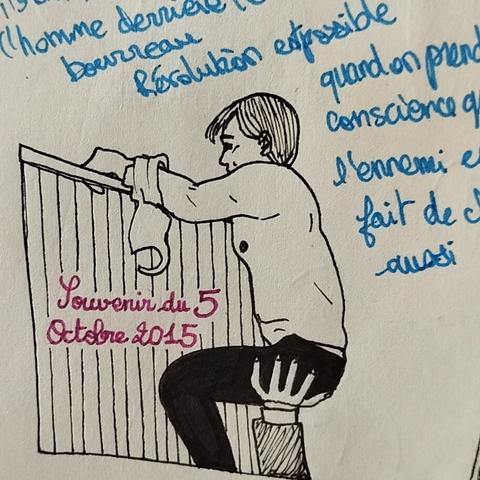 l'homme derrière le
bourreau
Révolution est possible
quand on prend
conscience q
l'ennemi e
fait de c
aussi
Souvenir du 5
Octobre 2015